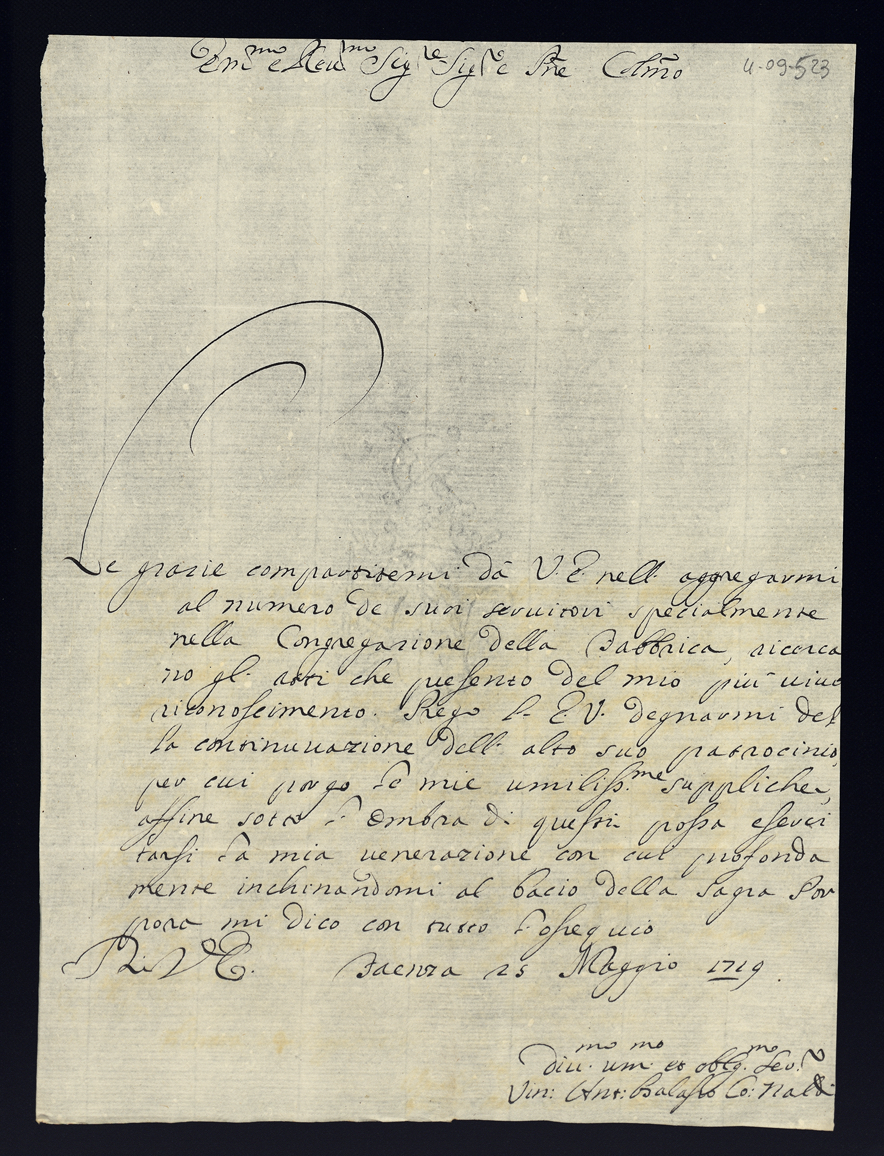 Em.mo e Reu.mo Sig.re Sig.re e Pne Colmo
4-09-523
Le grazie compartitemi dà V. E. nell' aggregarmi
al numero de suoi seruitori specialmente
nella Congregazione della Fabbrica, ricerca
no gl' atti che presento del mio più uiuo
riconoscimento. Prego l' E. V. degnarmi del
la continuuazione dell' alto suo patrocinio,
per cui porgo le mie umiliss.me suppliche,
affine sotto l' ombra di questi possa eserci
tarsi la mia venerazione con cui profonda
mente inchinandomi al bacio della Sagra Por
pora mi dico con tutto l' ossequio
Di V. E. Faenza 25 Maggio 1719.
Diu.mo um.mo et oblig.mo Seu.re
Vin: Ant: Co: Naldi